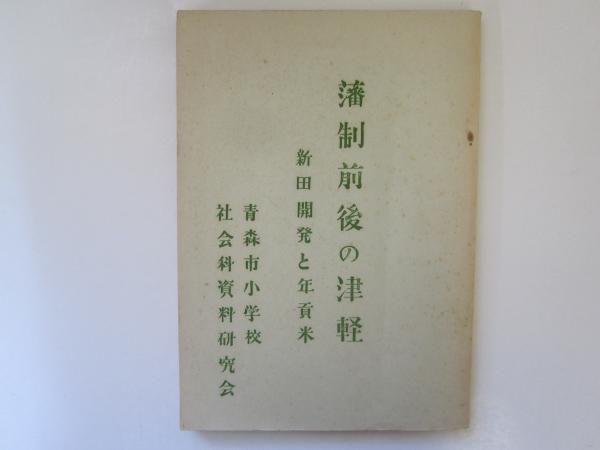 藩制前後の津軽
新田開発と年貢米
青森市小学校
社会科資料研究会